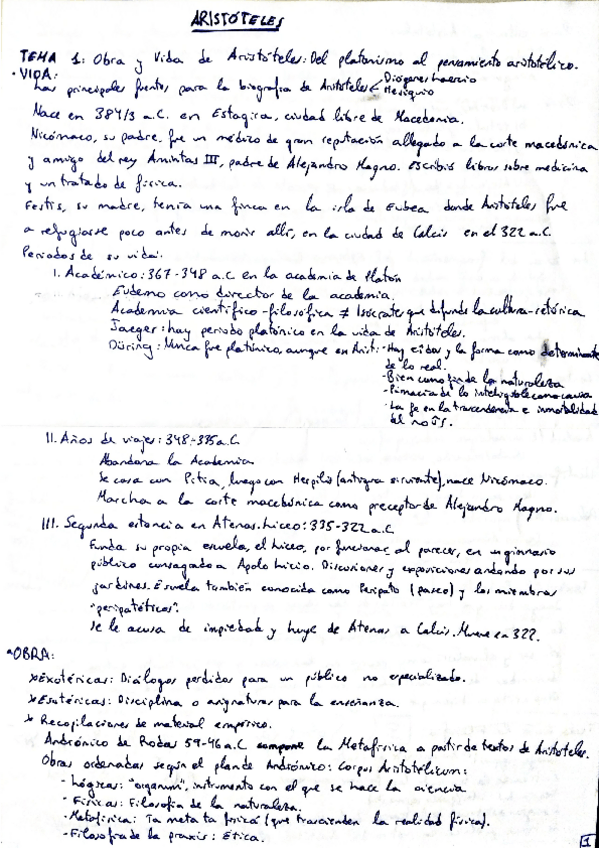 ARISTÓTELES
TEMA 1: Obra y Vida de Aristóteles: Del platonismo al pensamiento aristotélico.
· VIDA:
Las principales fuentes para la biografía de Aristóteles Diógenes Laercio
Hesiquio
Nace en 384/3 a.C. en Estagira, ciudad libre de Macedonia.
Nicómaco, su padre, fue un médico de gran reputación allegado a la corte macedónica
y amigo del rey Amintas III, padre de Alejandro Magno. Escribió libros sobre medicina
y un tratado de física.
Festis, su madre, tenía una finca en la isla de Eubea donde Aristóteles fue
a refugiarse poco antes de morir allí, en la ciudad de Calcis en el 322 a.C.
Periodos de su vida:
I. Académico: 367-348 a.C en la academia de Platón
Eudemo como director de la academia.
Academia científico-filosófica ≠ Isócrates que difunde la cultura-retórica
Jaeger: hay periodo platónico en la vida de Aristóteles.
Düring: Nunca fue platónico, aunque en Arist: - Hay eidos y la forma como determinante
de lo real.
- Bien como fin de la naturaleza
- Primacía de lo inteligible como causa
- La fe en la trascendencia e inmortalidad
del noûs.
II. Años de viajes: 348-335 a.C
Abandona la Academia
Se casa con Pitia, luego con Herpilis (antigua sirviente), nace Nicómaco.
Marcha a la corte macedónica como preceptor de Alejandro Magno.
III. Segunda estancia en Atenas. Liceo: 335-322 a.C
Funda su propia escuela, el Liceo, por funcionar, al parecer, en un gimnasio
público consagrado a Apolo Licio. Discusiones y exposiciones andando por sus
jardines. Escuela también conocida como Peripato (paseo) y los miembros
"peripatéticos".
Se le acusa de impiedad y huye de Atenas a Calcis. Muere en 322.
· OBRA:
* Exotéricas: Diálogos perdidos para un público no especializado.
* Esotéricas: Disciplina o asignaturas para la enseñanza.
* Recopilaciones de material empírico.
Andrónico de Rodas 59-46 a.C compone la Metafísica a partir de textos de Aristóteles.
Obras ordenadas según el plan de Andrónico: Corpus Aristotélicum:
- Lógicas: "organum", instrumento con el que se hace la ciencia
- Físicas: Filosofía de la naturaleza.
- Metafísica: Ta meta ta fisicá (que trascienden la realidad física).
- Filosofía de la praxis: Ética.
1